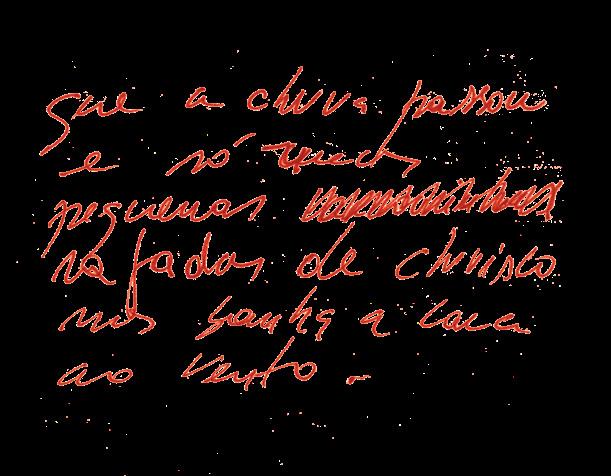 que a chuva passou
e só umas
pequenas
rajadas de chuvisco
nos banha a cara
ao vento.